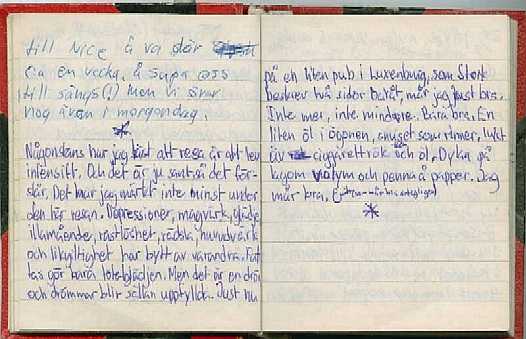 till Nice å va där
ca en vecka. å supa oss
till sängs(!) men vi svär
nog även i morgondag.
*
Någonstans har jag läst att resa är att leva
intensift. Och det är ju sant så det för-
slår. Det har jag märkt inte minst under
den här resan. Depressioner, magvärk, glädje
illamående, rastlöshet, rädsla, huvudvärk
och likgiltighet har bytt av varandra. Fat-
tas gör bara
och drömmar blir sällan uppfyllda. Just nu
på en liten pub i Luxemburg, som Stork
beskrev två sidor bakåt, mår jag just bra.
Inte mer, inte mindre. Bara bra. En
liten öl i öppnen, snuset som rinner, lukt
av ciggarettrök och öl. Dyka på
lagom volym och penna å papper. Jag
mår bra.
*